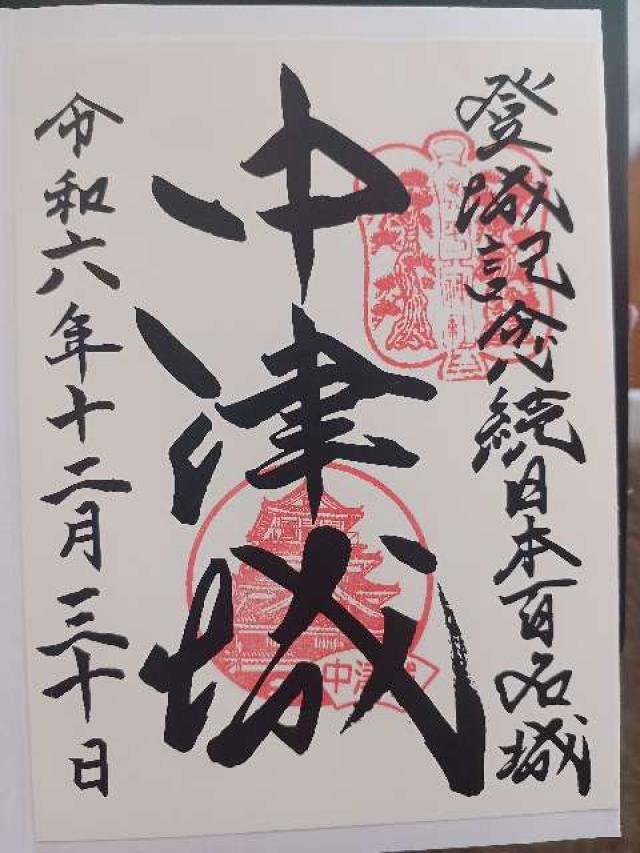 登城記念続日本百名城
中津城
令和六年十二月三十日
中津城